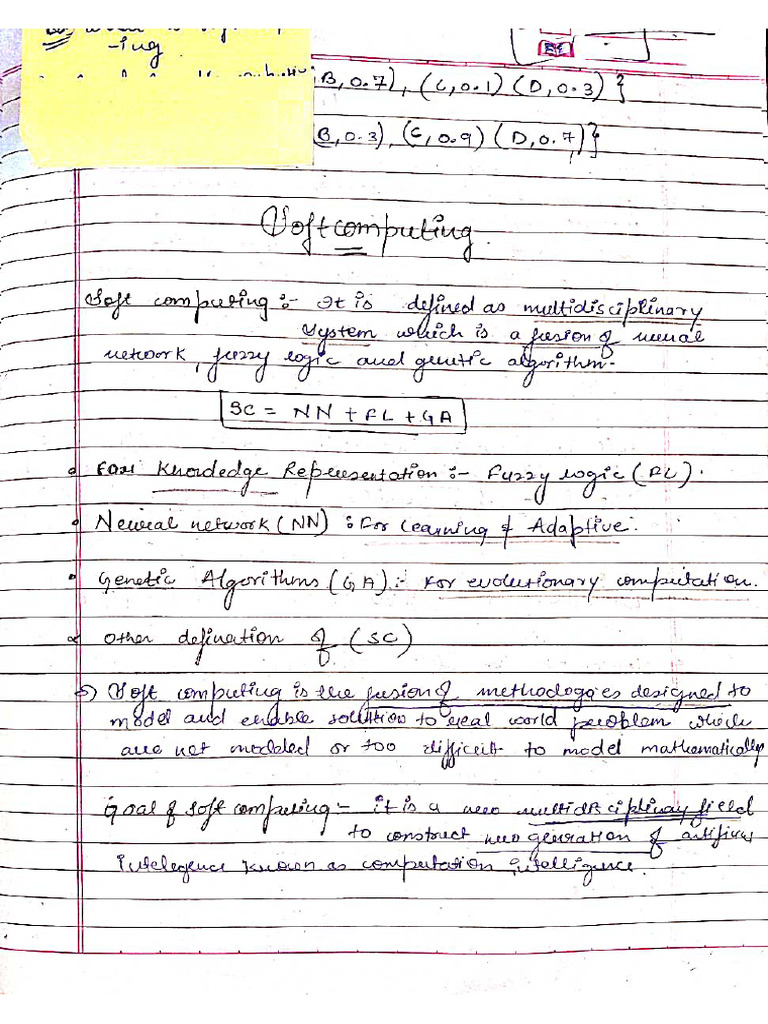 -ing
B, 0.7), (C, 0.1) (D, 0.3) }
B, 0.3), (C, 0.9) (D, 0.7) }
Softcomputing
Soft computing :- It is defined as multidisciplinary
System which is a fusion of neural
network, fuzzy logic and genetic algorithm.
SC = NN + FL + GA
For Knowledge Representation :- Fuzzy logic (FL).
Neural network (NN) : For Learning & Adaptive.
Genetic Algorithms (GA) :- For evolutionary computation.
Other defination of (SC)
Soft computing is the fusion of methodologies designed to
model and enable solution to real world problem which
are not modeled or too difficult to model mathematically
Goal of soft computing :- it is a new multidisciplinary field
to construct new generation of
intelegence known as computation intelligence.